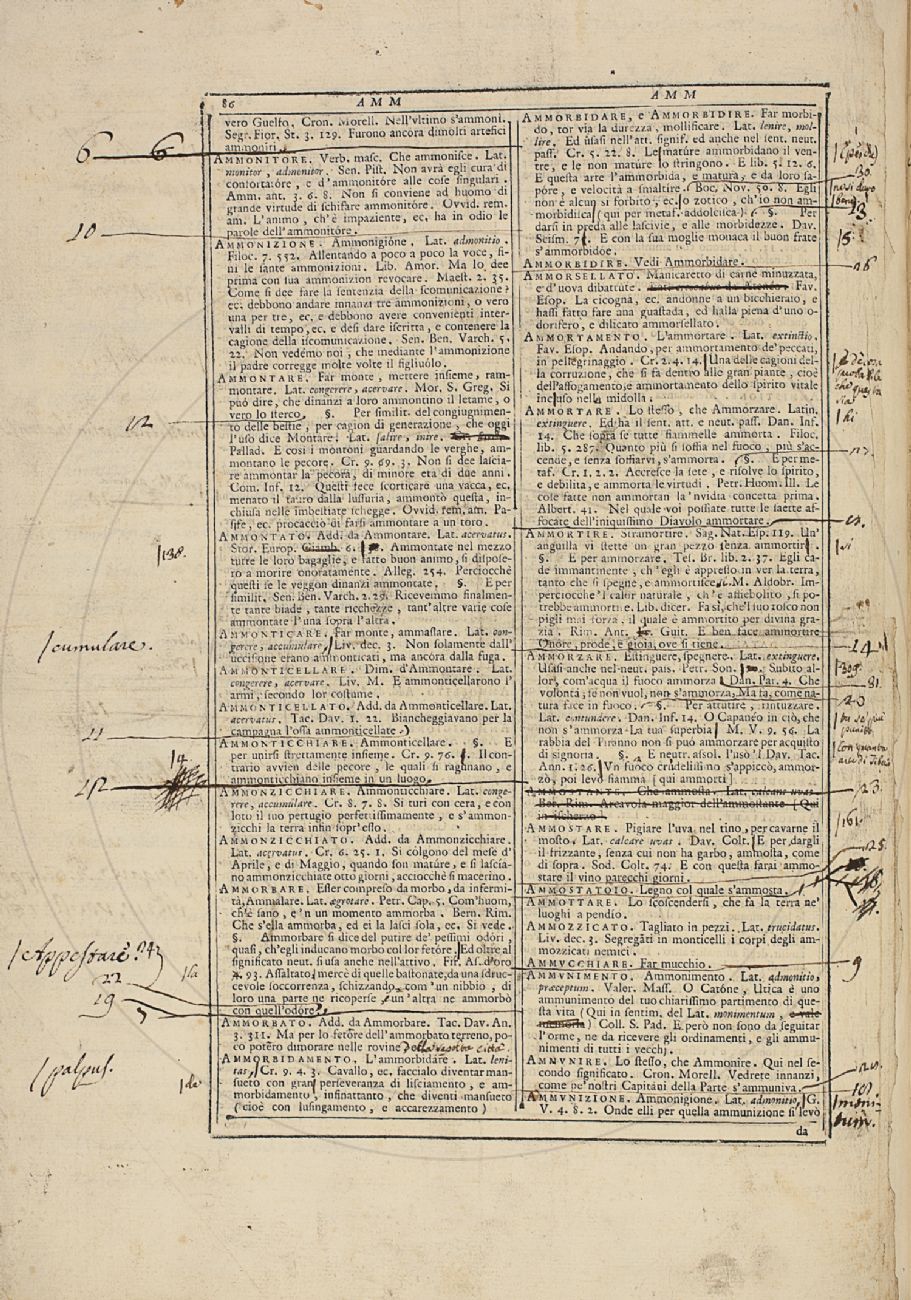 86
A M M
A M M
vero Guelfo, Cron. Morell. Nell'vltimo s'ammoni.
Segr. Fior. St. 3. 129. Furono ancora dimolti artefici
ammoniti.
AMMONITORE. Verb. masc. Che ammonisce. Lat.
monitor, admonitor. Sen. Pist. Non avrà egli cura di
confortatóre, e d'ammonitóre alle cose singulari.
Amm. ant. 3. 6. 8. Non si conviene ad huomo di
grande virtude di schifare ammonitóre. Ovvid. rem.
am. L'animo, ch'è impaziente, ec. ha in odio le
parole dell'ammonitore.
AMMONIZIONE. Ammonigióne. Lat. admonitio.
Filoc. 7. 552. Allentando a poco a poco la voce, fi-
ni le sante ammonizioni. Lib. Amor. Ma lo dee
prima con sua ammonizion revocare. Maest. 2. 35.
Come si dee fare la sentenzia della scomunicazione?
ec. debbono andare innanzi tre ammonizioni, o vero
una per tre, ec. e debbono avere convenienti inter-
valli di tempo, ec. e dési dare iscritta, e contenere la
cagione della iscomunicazione. Sen. Ben. Varch. 5.
22. Non vedémo noi, che mediante l'ammonizione
il padre corregge molte volte il figliuólo.
AMMONTARE. Far monte, mettere insieme, ram-
montare. Lat. congerere, acervare. Mor. S. Greg. Si
può dire, che dinanzi a loro ammontino il letame, o
vero lo sterco. §. Per similit. del congiugnimen-
to delle bestie, per cagion di generazione, che oggi
l'uso dice Montare. Lat. salire, inire.
Pallad. E così i montoni guardando le verghe, am-
montano le pecore. Cr. 9. 69. 3. Non si dee lascia-
re ammontar la pecora, di minore età di due anni.
Com. Inf. 12. Questi fece scorticare una vacca, ec.
menato il tauro dalla lussuria, ammontò questa, in-
chiusa nelle imbestiate schegge. Ovvid. rem. am. Pa-
sife, ec. procacciò di farsi ammontare a un toro.
AMMONTATO. Add. da Ammontare. Lat. acervatus.
Stor. Europ. Giamb. 6. Ammontate nel mezzo
tutte le loro bagaglie, e fatto buon animo, si dispose-
ro a morire onoratamente. Alleg. 254. Perciocchè
questi se le veggon dinanzi ammontate, §. E per
similit. Sen. Ben. Varch. 2. 29. Ricevemmo finalmen-
te tante biade, tante ricchezze, tant'altre varie cose
ammontate l'una sopra l'altra.
AMMONTICARE. Far monte, ammassare. Lat. con-
gerere, accumulare, Liv. dec. 3. Non solamente dall'
uccisione erano ammonticati, ma ancora dalla fuga.
AMMONTICELLARE. Dim. d'Ammontare. Lat.
congerere, acervare. Liv. M. E ammonticellarono l'
armi, secondo lor costume.
AMMONTICELLATO. Add. da Ammonticellare. Lat.
acervatus. Tac. Dav. 1. 22. Biancheggiavano per la
campagna l'ossa ammonticellate.
AMMONTICCHIARE. Ammonticellare. §. E
per unirsi strettamente insieme. Cr. 9. 76. Il con-
trario avvien delle pecore, le quali si ragunano, e
ammonticchiano insieme in un luogo.
AMMONZICCHIARE. Ammonticchiare. Lat. conge-
rere, accumulare. Cr. 8. 7. 8. Si turi con cera, e con
loto il suo pertugio perfettissimamente, e s'ammon-
zicchi la terra infin sopr'esso.
AMMONZICCHIATO. Add. da Ammonzicchiare.
Lat. acervatus. Cr. 6. 25. 1. Si cólgono del mese d'
Aprile, e di Maggio, quando son matúre, e si lascia-
no ammonzicchiate otto giorni, acciocchè si macerino.
AMMORBARE. Esser compreso da morbo, da infermi-
tà, Ammalare. Lat. ægrotare. Petr. Cap. 5. Com'huom,
ch'è sano, e'n un momento ammorba. Bern. Rim.
Che s'ella ammorba, ed ei la lasci sola, ec. Si vede.
§. Ammorbare si dice del putire de' pessimi odóri,
quasi, ch'egli inducano morbo col lor fetóre. Ed oltre al
significato neut. si usa anche nell'attivo. Fir. As. d'oro
93. Assaltato, mercè di quelle bastonate, da una sdruc-
cevole soccorrenza, schizzando, com'un nibbio, di
loro una parte ne ricoperse, un'altra ne ammorbò
con quell'odóre.
AMMORBATO. Add. da Ammorbare. Tac. Dav. An.
3. 311. Ma per lo fetóre dell'ammorbato terreno, po-
co potéro dimorare nelle rovine della vecchia città.
AMMORBIDAMENTO. L'ammorbidáre. Lat. leni-
tas, Cr. 9. 4. 3. Cavallo, ec. facciálo diventar man-
sueto con gran perseveranza di lisciamento, e am-
morbidamento, infinattanto, che diventi mansueto
(cioè con lusingamento, e accarezzamento)
AMMORBIDARE, e AMMORBIDIRE. Far morbi-
do, tor via la durezza, mollificare. Lat. lenire, mol-
lire. Ed úsasi nell'att. signif. ed anche nel sent. neut.
pass. Cr. 5. 22. 8. Le matúre ammorbidano il ven-
tre, e le non mature lo stringono. E lib. 5. 12. 6.
E questa arte l'ammorbida, e matura, e da loro sa-
póre, e velocità a smaltire. Boc. Nov. 50. 8. Egli
non è alcun sì forbito, ec. o zotico, ch'io non am-
morbidisca (qui per metaf. addolcisca) §. Per
darsi in preda alle lascivie, e alle morbidezze. Dav.
Scism. 7. E con la sua moglie monaca il buon frate
s'ammorbidóe.
AMMORBIDIRE. Vedi Ammorbidare.
AMMORSELLATO. Manicaretto di carne minuzzata,
e d'uova dibattute. Fav.
Esop. La cicogna, ec. andonne a un bicchieraio, e
hassi fatto fare una guastada, ed halla piena d'uno o-
dorífero, e dilicato ammorsellato.
AMMORTAMENTO. L'ammortare. Lat. extinctio.
Fav. Esop. Andando, per ammortamento de'peccati,
in pellegrinaggio. Cr. 2. 4. 14. Una delle cagioni del-
la corruzione, che si fa dentro alle gran piante, cioè
dell'affogamento, e ammortamento dello spirito vitale
incluso nella midolla.
AMMORTARE. Lo stesso, che Ammorzare. Latin.
extinguere. Ed ha il sent. att. e neut. pass. Dan. Inf.
14. Che sopra se tutte fiammelle ammorta. Filoc.
lib. 5. 287. Quanto più si soffia nel fuoco, più s'ac-
cende, e senza soffiarvi, s'ammorta. §. E per me-
taf. Cr. 1. 2. 2. Accresce la sete, e risolve lo spirito,
e debilita, e ammorta le virtudi. Petr. Huom. Ill. Le
cose fatte non ammortan la 'nvidia concetta prima.
Albert. 41. Nel quale voi possiate tutte le saette af-
focate dell'iniquissimo Diavolo ammortare.
AMMORTIRE. Stramortire. Sag. Nat. Esp. 119. Un'
anguilla vi stette un gran pezzo senza ammortir.
§. E per ammorzare. Tes. Br. lib. 2. 37. Egli ca-
de immantinente, ch'egli è appresso in ver la terra,
tanto che si spegne, e ammortisce. M. Aldobr. Im-
perciocchè l'calor naturale, ch'è affiebolito, si po-
trebbe ammortire. Lib. dicer. Fa sì, che'l suo tosco non
pigli mai forza, il quale è ammortito per divina gra-
zia. Rim. Ant. Guit. E ben face ammortire
Onóre, prode, e gioia, ove si tiene.
AMMORZARE. Estinguere, spegnere. Lat. extinguere.
Usasi anche nel neut. pass. Petr. Son. Subito al-
lor, com'acqua il fuoco ammorza. Dan. Par. 4. Che
volontà, se non vuol, non s'ammorza, Ma fa, come na-
tura face in fuoco. §. Per attutire, rintuzzare.
Lat. contundere. Dan. Inf. 14. O Capanéo in ciò, che
non s'ammorza La tua superbia. M. V. 9. 56. La
rabbia del Tiranno non si può ammorzare per acquisto
di signoría. §. E neutr. assol. l'usò'l Dav. Tac.
Ann. 1. 26. Vn fuoco crudelissimo s'appiccò, ammor-
zò, poi levò fiamma [qui ammortì]
AMMOSTANTE. Che ammosta. Lat. calcans uvas.
Ber. Rim. Arcavola maggior dell'ammostante (Qui
in ischerzo)
AMMOSTARE. Pigiare l'uva nel tino, per cavarne il
mosto. Lat. calcare uvas. Dav. Colt. E per dargli
il frizzante, senza cui non ha garbo, ammolta, come
di sopra. Sod. Colt. 74. E con questa farai ammo-
stare il vino parecchi giorni.
AMMOSTATOIO. Legno col quale s'ammosta.
AMMOTTARE. Lo scoscendersi, che fa la terra ne'
luoghi a pendío.
AMMOZZICATO. Tagliato in pezzi. Lat. trucidatus.
Liv. dec. 3. Segregáti in monticelli i corpi degli am-
mozzicati nemici.
AMMVCCHIARE. Far mucchio.
AMMVNIMENTO. Ammonimento. Lat. admonitio,
præceptum. Valer. Mass. O Catóne, Utica è uno
ammunimento del tuo chiarissimo partimento di que-
sta vita (Qui in sentim. del Lat. monimentum, e vale
memoria) Coll. S. Pad. E però non sono da seguitar
l'orme, ne da ricevere gli ordinamenti, e gli ammu-
nimenti di tutti i vecchj.
AMMVNIRE. Lo stesso, che Ammonire. Qui nel se-
condo significato. Cron. Morell. Vedrete innanzi,
come pe'nostri Capitáni della Parte s'ammuniva.
AMMVNIZIONE. Ammonigione. Lat. admonitio, G.
V. 4. 8. 2. Onde elli per quella ammunizione si levò
da
6 6
10
12
138.
cumulare.
11
12
Appestare
22
19
palpus.
13
15
16
14
20
23.
161.
25.
9
moni-
tum.